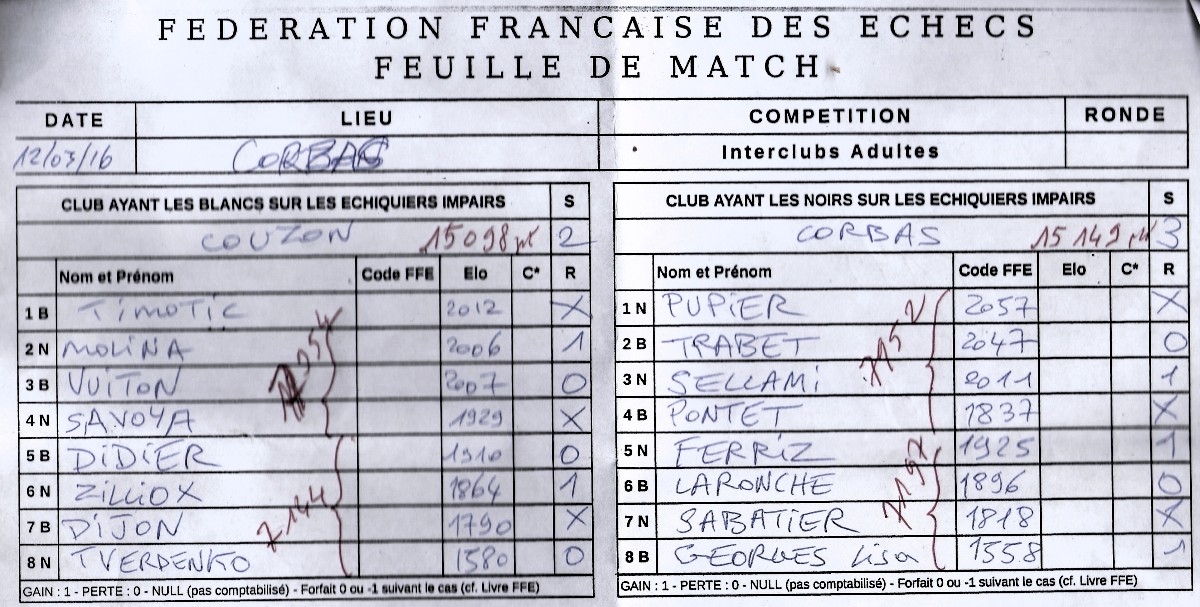 FEDERATION FRANCAISE DES ECHECS
FEUILLE DE MATCH
DATE LIEU COMPETITION RONDE
12/03/16 CORBAS Interclubs Adultes
CLUB AYANT LES BLANCS SUR LES ECHIQUIERS IMPAIRS S
COUZON 15098 pt 2
Nom et Prénom Code FFE Elo C* R
1 B TIMOTIC 2012 X
2 N MOLINA 2006 1
3 B VUITON 2007 0
4 N SAVOYA 1929 X
5 B DIDIER 1910 0
6 N ZILLIOX 1864 1
7 B DIJON 1790 X
8 N TVERDENKO 1580 0
7144
GAIN : 1 - PERTE : 0 - NULL (pas comptabilisé) - Forfait 0 ou -1 suivant le cas (cf. Livre FFE)
CLUB AYANT LES NOIRS SUR LES ECHIQUIERS IMPAIRS S
CORBAS 15149 pt 3
Nom et Prénom Code FFE Elo C* R
1 N PUPIER 2057 X
2 B TRABET 2047 0
3 N SELLAMI 2011 1
4 B PONTET 1837 X
5 N FERRIZ 1925 1
6 B LARONCHE 1896 0
7 N SABATIER 1818 X
8 B GEORGES Lisa 1558 1
GAIN : 1 - PERTE : 0 - NULL (pas comptabilisé) - Forfait 0 ou -1 suivant le cas (cf. Livre FFE)